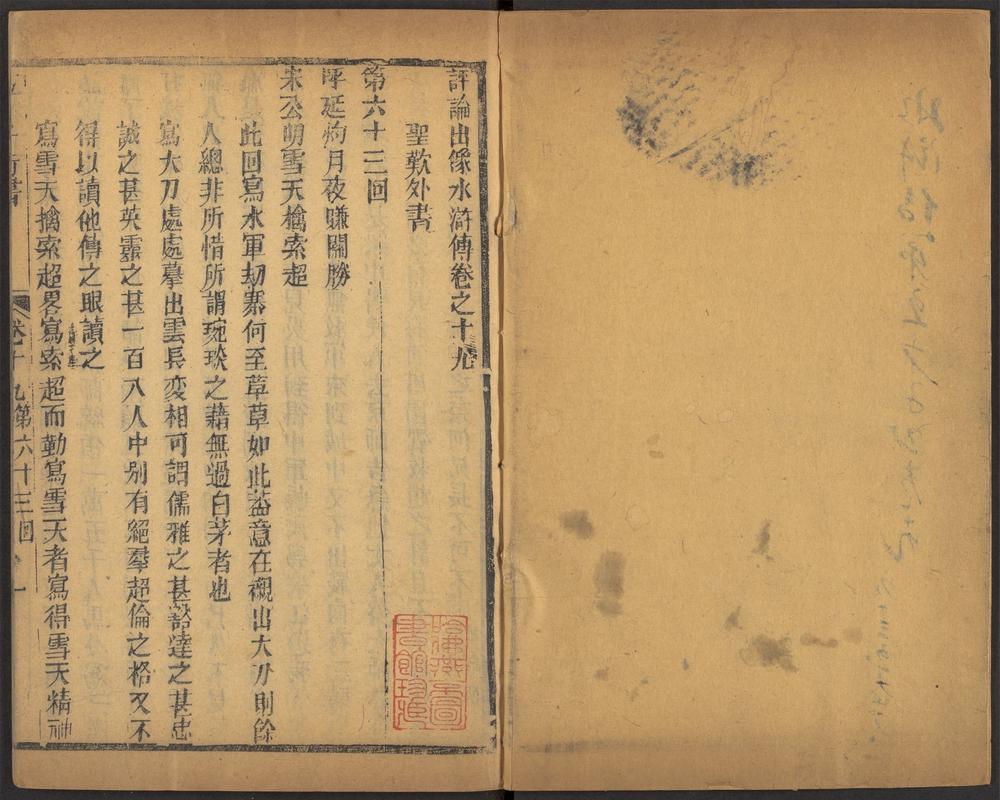 評論出像水滸傳卷之十九
聖歎外書
第六十三回
呼延灼月夜賺關勝
宋公明雪天擒索超
此回寫水軍劫寨何至草草如此葢意在襯出大刀則餘
人總非所惜所謂琬琰之藉無過白茅者也
寫大刀處處摹出雲長变相可謂儒雅之甚豁達之甚忠
誠之甚英靈之甚一百八人中別有絕羣超倫之格又不
得以讀他傳之眼讀之
寫雪天擒索超畧寫索超而勤寫雪天者寫得雪天精神
才子書
卷十九第六十三回
一
哈佛燕京圖書館珍藏